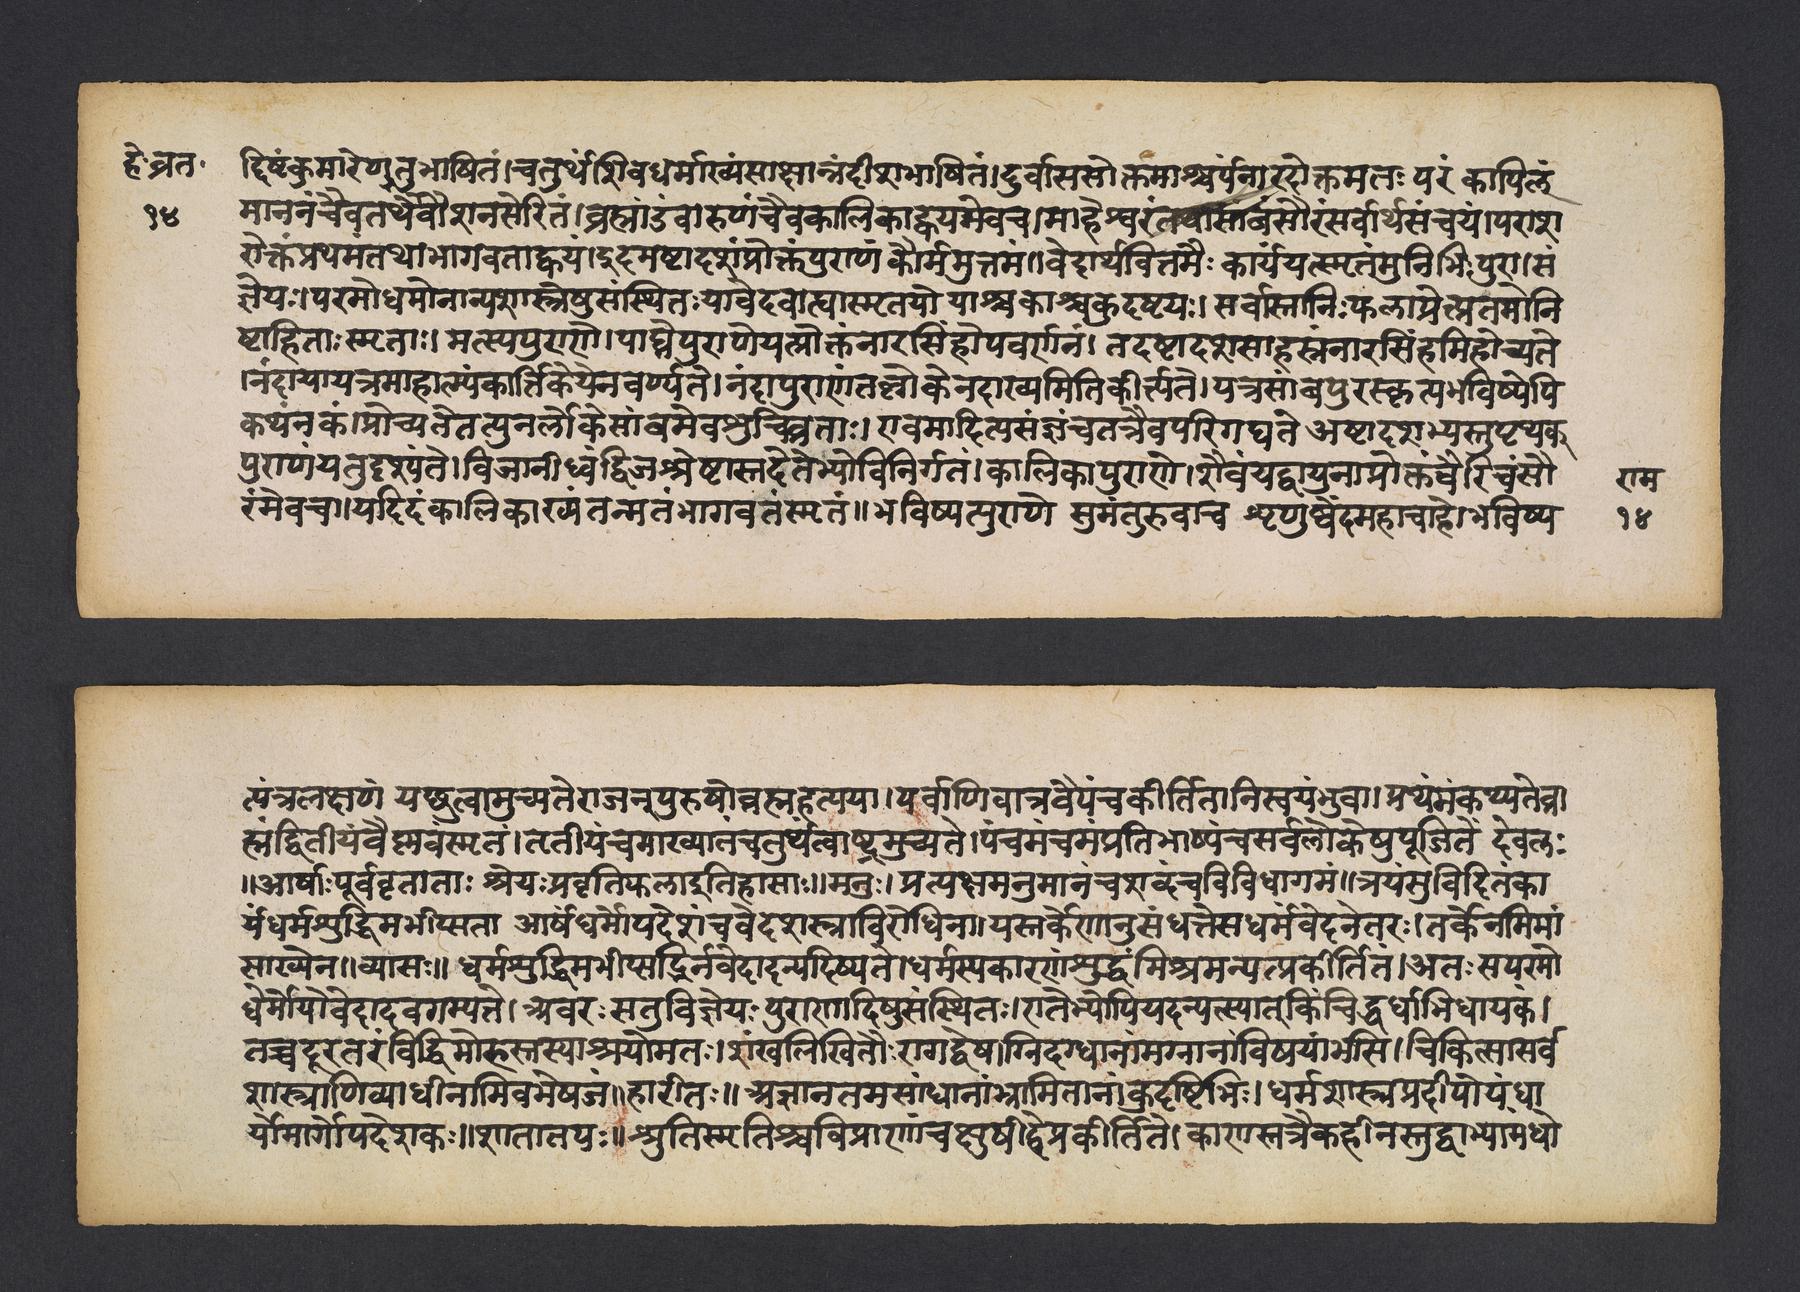 हे॰व्रत॰
१४
द्दिष्टंकुमारेणतुभाषितं।चतुर्थंशिवधर्माख्यंसाक्षान्नंदीशभाषितं।दुर्वाससोक्तमाश्चर्यंनारदोक्तमतः परं कापिलं
माननंचैवतथैवौशनसेरितं।ब्रह्मांडंवारुणंचैवकालिकाह्वयमेवच।माहेश्वरंतथासांबंसौरंसर्वार्थसंचयं।पराशा
रोक्तंप्रथमंतथाभागवताह्वयं।इदमष्टादशंप्रोक्तंपुराणं कौर्ममुत्तमं॥वेदार्थवित्तमैः कार्यंयत्स्मृतंमुनिभिःपुरा।सं
ज्ञेयः।परमोधर्मोनान्यशास्त्रेषुसंस्थितःयावेदबाह्यास्मृतयो याश्चकाश्चकुदृष्टयः। सर्वास्तानिःफलाप्रेत्यतमोनि
ष्टाहिताःस्मृताः। मत्स्यपुराणे।पाद्मेपुराणेयत्प्रोक्तंनारसिंहोपवर्णनं। तदष्टादशसाहस्रंनारसिंहमिहोच्यते
।नंदायायत्रमाहात्म्यंकार्त्तिकेयेनवर्ण्यते।नंदापुराणंतल्लोकेनंदाख्यमितिकीर्त्यते।यत्रसांबंपुरस्कृत्यभविष्येपि
कथंनकं।प्रोच्यतेतत्पुनर्लोकेसांबमेवशुचिव्रताः। एवमादित्यसंज्ञंचतत्रैवपरिगद्यते अष्टादशभ्यस्तुपृथक्
पुराणंयत्तुदृश्यते।विजानीध्वंद्विजश्रेष्टास्तदेतेभ्योविनिर्गतं।कालिकापुराणे।शैवंयद्वायुनाप्रोक्तंवैरिंचंसौ
रंमेवच।यदिदंकालिकाख्यंतन्मतंभागवतंस्मृतं॥भविष्यत्पुराणे सुमंतुरुवाच शृणुष्वेदंमहाबाहो।भविष्य
राम
१४
त्पंत्रलक्षणं यच्छ्रुत्वामुच्यतेराजन्पुरुषोब्रह्महत्यया।पर्वाणिवात्रवैपंचकीर्तितानिस्वयंभुवा।प्रथमंकथ्यतेब्रा
ह्मंद्वितीयंवैष्णवंस्मृतं।तृतीयंचमाख्यातंचतुर्थंत्वाष्ट्रमुच्यते।पंचमंचमंप्रतिभाष्यंचसर्वलोकेषुपूजितें देवलः
॥आर्षाःपूर्ववृत्तांताः श्रेयःप्रवृतिफलाइतिहासाः॥मनुः। प्रत्यक्षमनुमानंचशब्दंचविविधागमं॥त्रयंसुविदितंका
र्यंधर्मशुद्धिमभीप्सता आर्षंधर्मोपदेशंचवेदेशास्त्राविरोधिना।यस्तर्केणानुसंधत्तेसधर्मवेदनेतरः।तर्केनमिमां
साख्येन॥व्यासः॥ धर्मशुद्धिमभीप्सद्भिर्नवेदादन्यदिष्यते।धर्मस्यकारणंशुद्धंमिश्रमन्यत्प्रकीर्तितं।अतःसपरमो
धर्मोयोवेदादवगम्यते। अवरः सतुविज्ञेयः पुराणादिषुसंस्थितः।एतेभ्योपियदन्यत्स्यात्किंचिद्धर्माभिधायकं।
तच्चदूरतरंविद्धिमोहस्तस्याश्रयोमतः।शंखलिखितौः रागद्वेषाग्निदग्धानांमग्नानांविषयांभसि।चिकित्सासर्व
शास्त्राणिव्याधीनामिवभेषजं॥हारीतः॥ अज्ञानतमसांधानांभ्रामितानांकुदृष्टिभिः। धर्मशास्त्रप्रदीपोयंधा
र्योमार्गोपदेशकः॥शातातपः॥ श्रुतिस्मृतिश्चविप्राणांचक्षुषीद्वेप्रकीर्तिते। काणस्तत्रैकहीनस्तुद्वाभ्यामंधो